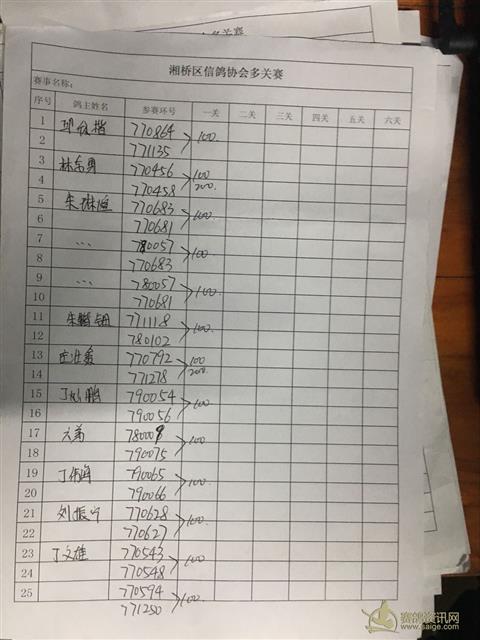 湘桥区信鸽协会多关赛
赛事名称:
序号 鸽主姓名 参赛环号 一关 二关 三关 四关 五关 六关
1 770864 100
2 771135
3 林东勇 770456 100
4 770458 200
5 朱琳恒 770683 100
6 770681
7 ... 780057 100
8 770683
9 ... 780057 100
10 770681
11 771118 100
12 780102
13 770792 100
14 771278 200
15 790054 100
16 790056
17 六弟 780009 100
18 790075
19 丁伟海 790065 100
20 790066
21 刘振宁 770628 100
22 770627
23 丁文雄 770543 100
24 770548
25 770594 100
771250
赛鸽资讯网
www.saige.com